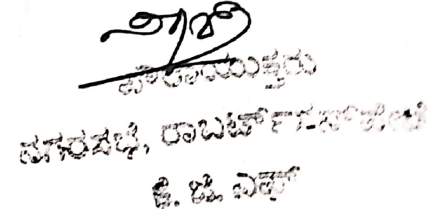 ಪೌರಾಯುಕ್ತರು
ನಗರಸಭೆ, ರಾಬರ್ಟ್‌ಸನ್‌ಪೇಟೆ
ಕೆ. ಜಿ. ಎಫ್